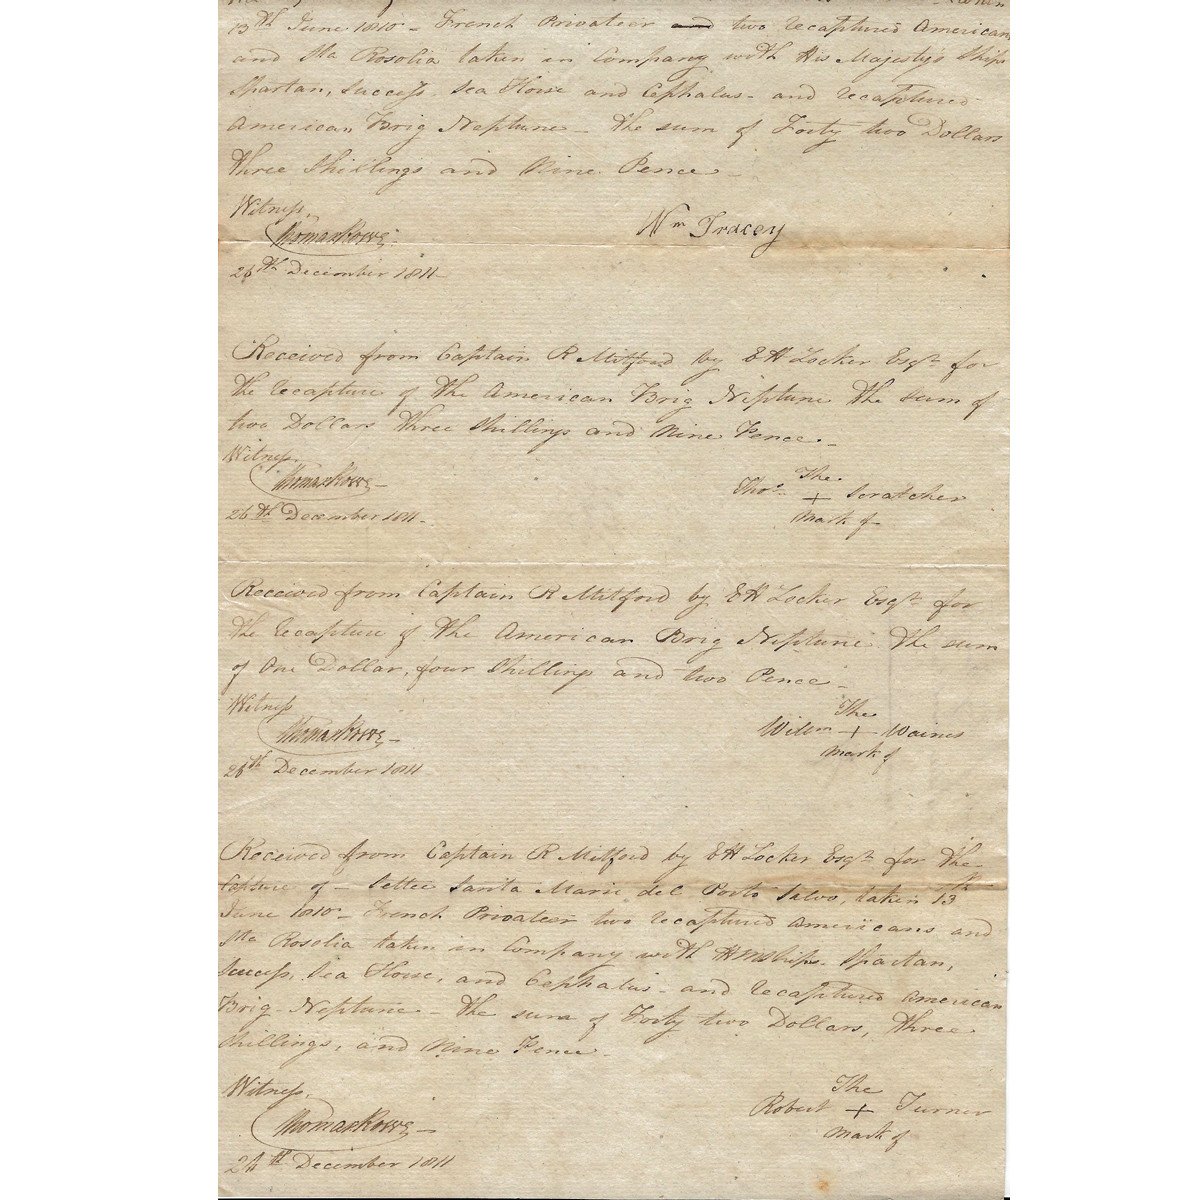 13th June 1810 - French Privateer and two recaptured American
and Sta Rosolia taken in Company with His Majesty's Ships
Spartan, Success, Sea Horse and Cephalus - and recaptured
American Brig Neptune - the sum of Forty two Dollars
three Shillings and Nine Pence -
Witness,
Thomas Rowe
Wm Tracey
26th December 1811 -
Received from Captain R Mitford by E H Locker Esqr for
the recapture of the American Brig Neptune the sum of
two Dollars three Shillings and Nine Pence. -
Witness,
Thomas Rowe -
The
Thos + Scratcher
Mark of
26th December 1811 -
Received from Captain R Mitford by E H Locker Esqr for
the recapture of the American Brig Neptune the sum
of One Dollar, four Shillings and two Pence -
Witness
Thomas Rowe -
The
Willm + Waines
Mark of
26th December 1811
Received from Captain R Mitford by E H Locker Esqr for the
Capture of - Settee Santa Marie del Porto Salvo, taken 13th
June 1810 - French Privateer two recaptured Americans and
Sta Rosolia taken in Company with H M Ships - Spartan,
Success, Sea Horse, and Cephalus - and recaptured American
Brig - Neptune - the sum of Forty two Dollars, three
Shillings, and Nine Pence -
Witness,
Thomas Rowe -
The
Robert + Turner
Mark of
24th December 1811